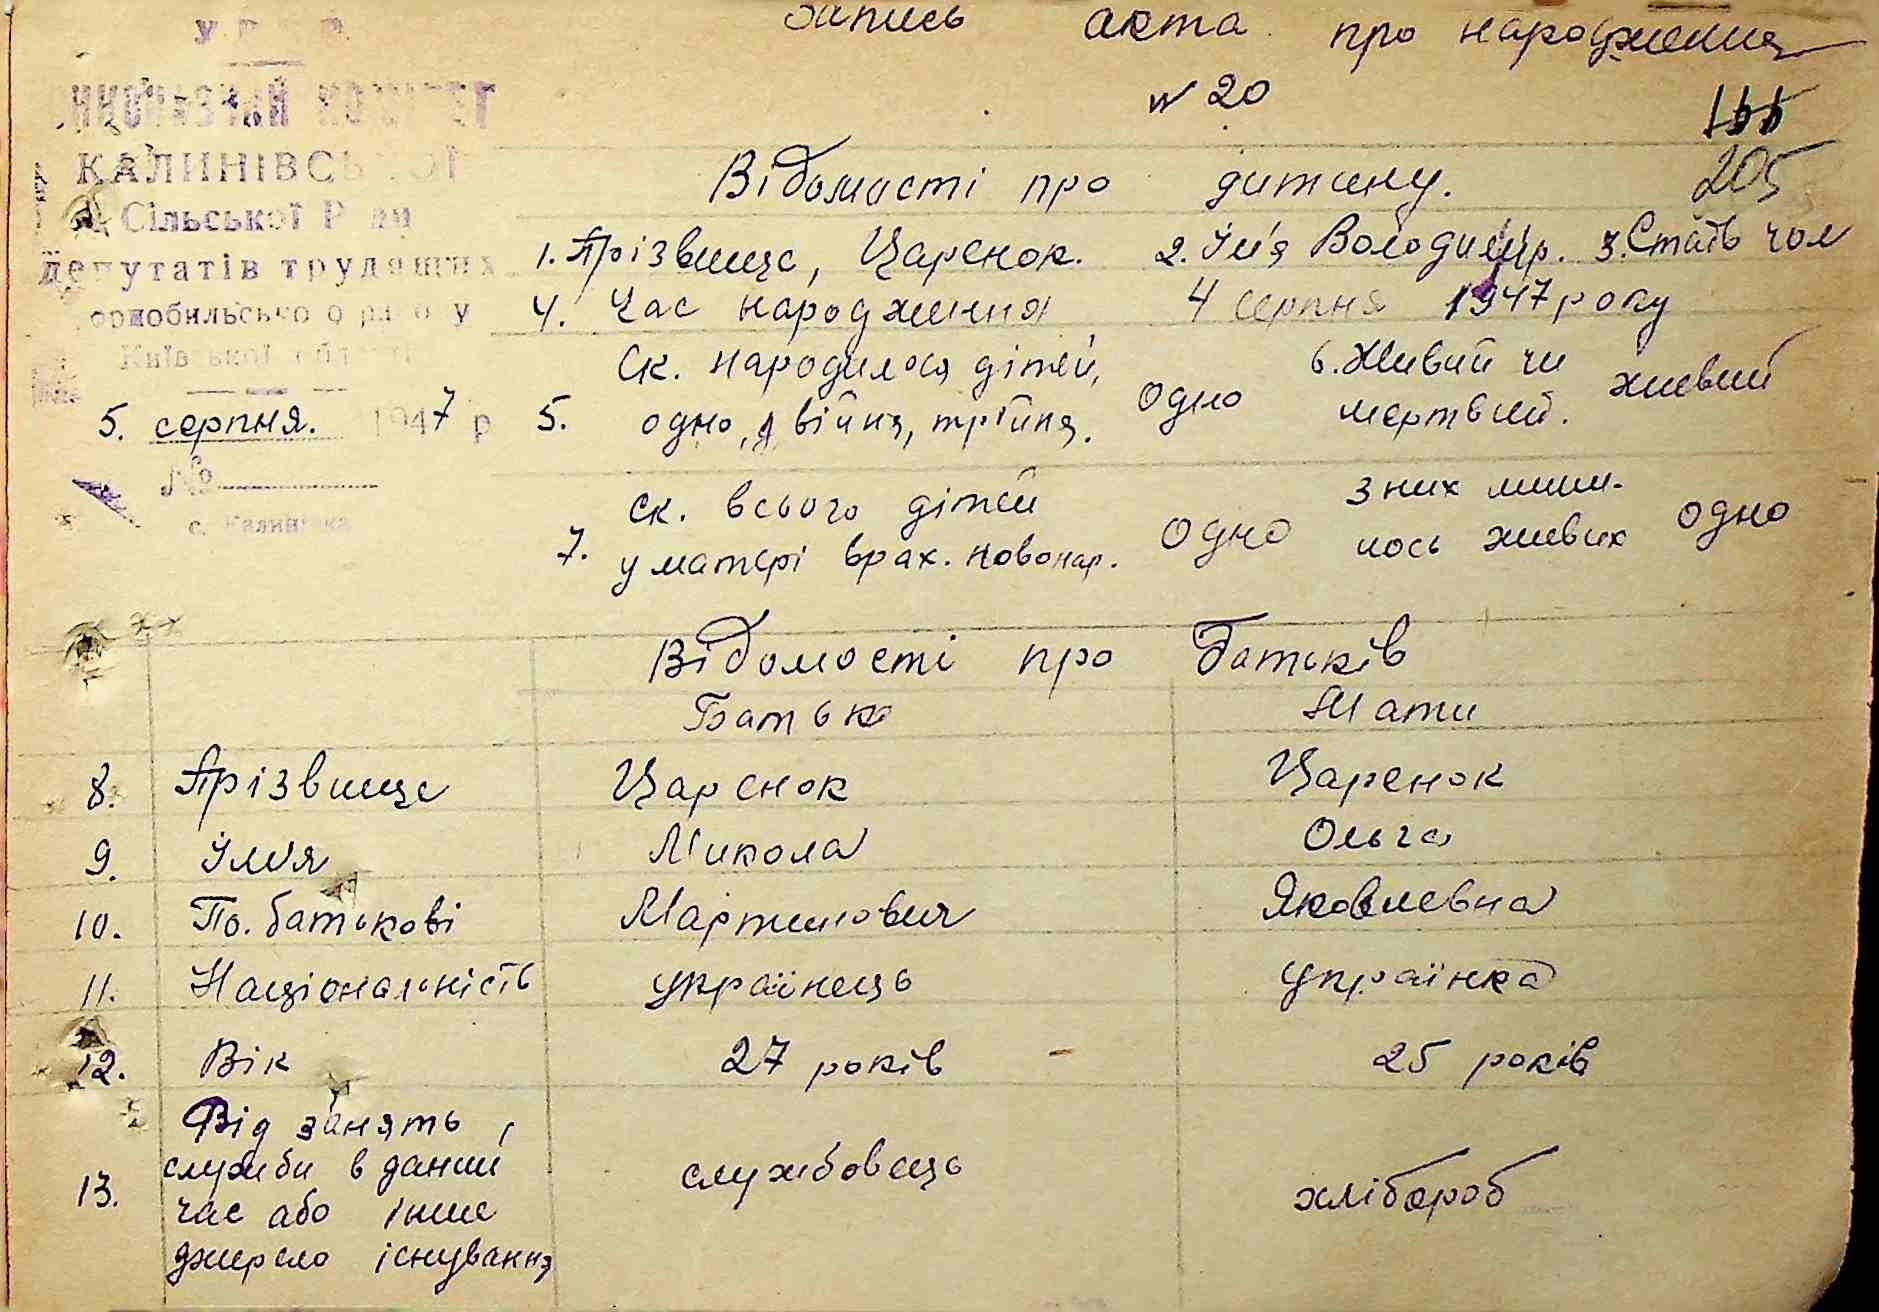 Запись акта про народження
№ 20
155
205
У.Р.С.Р.
КАЛИНІВСЬКОЇ
Сільської Ради
депутатів трудящих
Київської області
5. серпня. 1947 р
№
с. Калинівка
Відомості про дитину.
1. Прізвище, Царенок. 2. Ім'я Володимир. 3. Стать чол
4. Час народження 4 серпня 1947 року
5. Ск. народилося дітей, одно, двійня, трійня. одно 6. Живий чи мертвий. живий
7. Ск. всього дітей у матері врах. новонар. одно з них лиши- лось живих одно
Відомості про батьків
Батько Мати
8. Прізвище Царенок Царенок
9. Ім'я Микола Ольга
10. По.батькові Мартинович Яковлевна
11. Національність українець українка
12. Вік 27 років 25 років
13. Від занять, служби в даний час або інше джерело існування службовець хлібороб